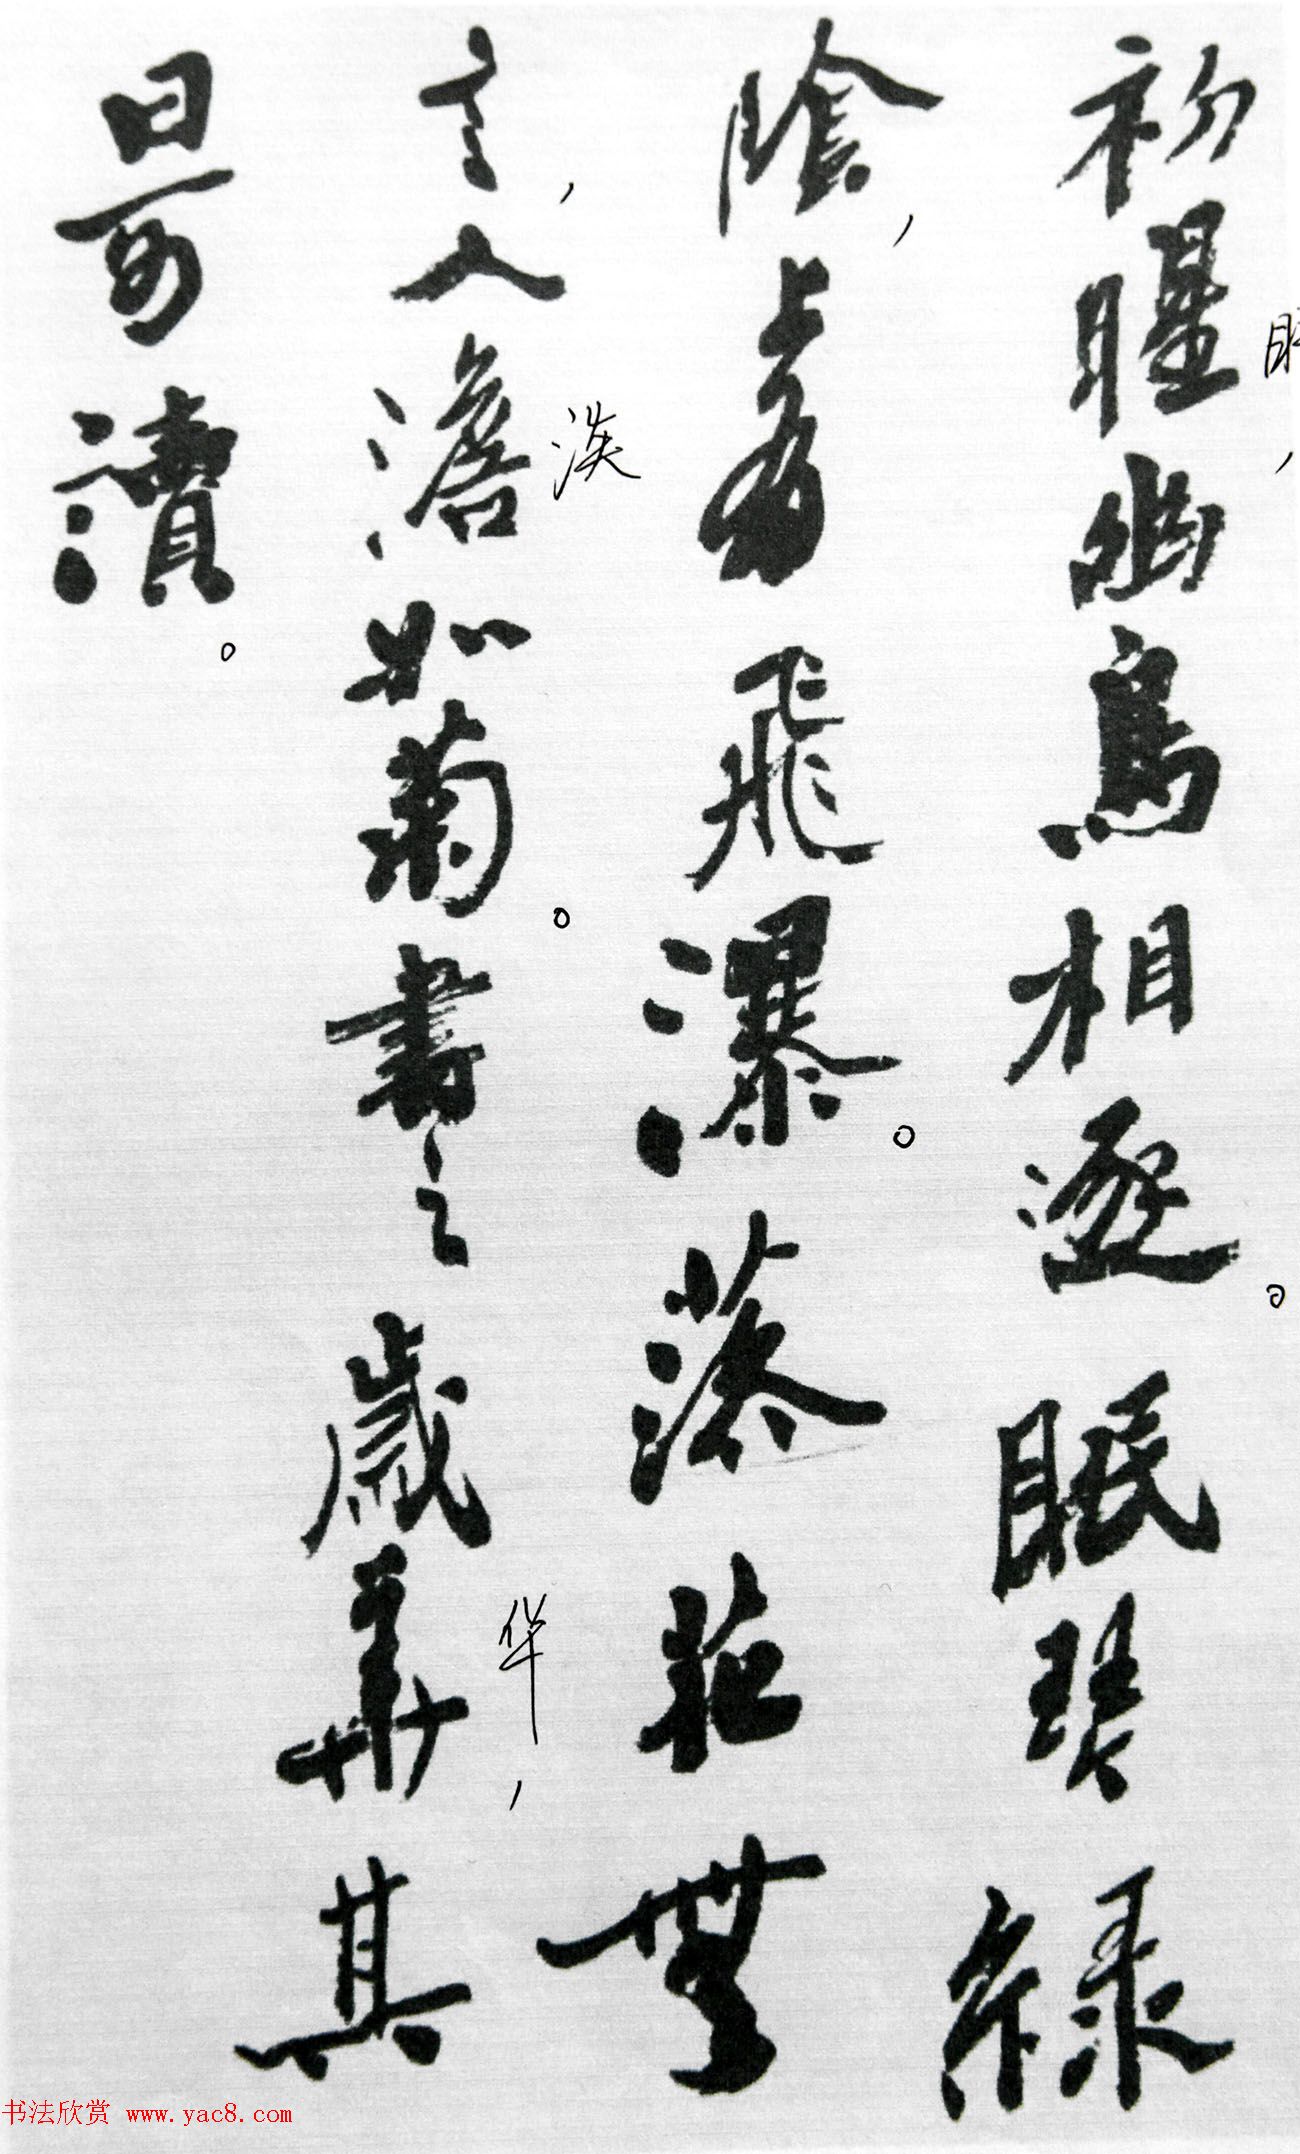 初暒，幽鳥相逐。眠琴綠
陰，上有飛瀑。落花無
言，人澹如菊。書之歲華，其
曰可讀。
淡
华
书法欣赏 www.yac8.com